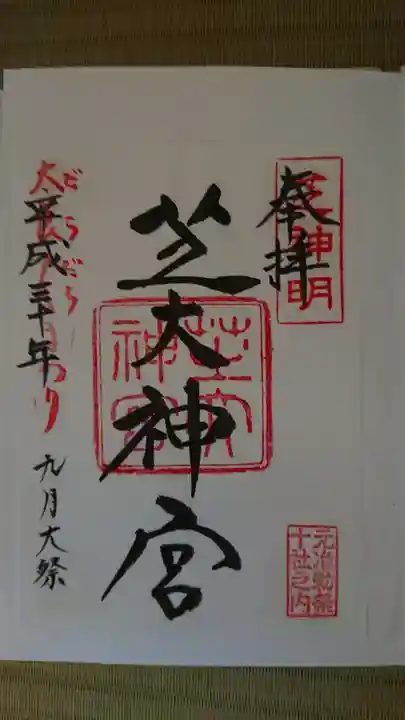 奉拝
芝神明
芝大神宮
芝大神宮
元准勅祭
十社之内
平成三十年
九月大祭